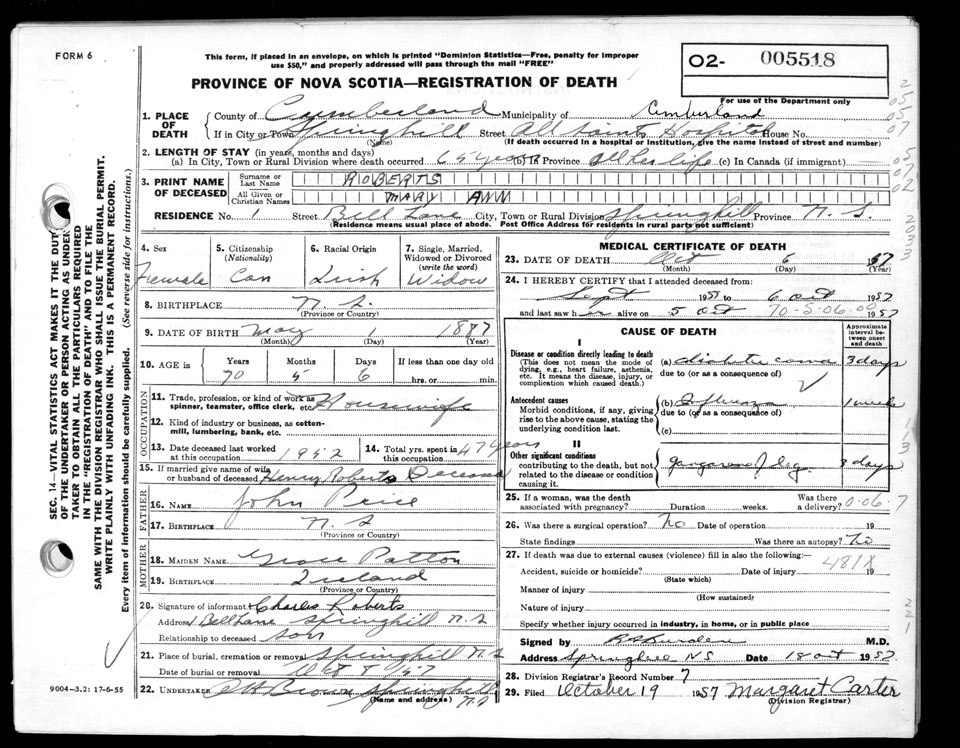 FORM 6
This form, if placed in an envelope, on which is printed "Dominion Statistics—Free, penalty for improper
use $50," and properly addressed will pass through the mail "FREE"
O2- 005518
PROVINCE OF NOVA SCOTIA—REGISTRATION OF DEATH
For use of the Department only
1. PLACE OF DEATH
County of Cumberland Municipality of Cumberland
If in City or Town Springhill Street All Saints Hospital House No.
(Name) (If death occurred in a hospital or institution, give the name instead of street and number)
2. LENGTH OF STAY (in years, months and days)
(a) In City, Town or Rural Division where death occurred 65 years (b) In Province all her life (c) In Canada (if immigrant)
3. PRINT NAME OF DECEASED
Surname or Last Name ROBERTS
All Given or Christian Names MARY ANN
RESIDENCE No. 1 Street Bell Lane City, Town or Rural Division Springhill Province N. S.
(Residence means usual place of abode. Post Office Address for residents in rural parts not sufficient)
4. Sex Female
5. Citizenship (Nationality) Can
6. Racial Origin Irish
7. Single, Married, Widowed or Divorced (write the word) Widow
8. BIRTHPLACE N. S.
(Province or Country)
9. DATE OF BIRTH May 1 1887
(Month) (Day) (Year)
10. AGE in Years 70 Months 5 Days 6 If less than one day old
hrs. or min.
OCCUPATION
11. Trade, profession, or kind of work as spinner, teamster, office clerk, etc. Housewife
12. Kind of industry or business, as cotton-mill, lumbering, bank, etc.
13. Date deceased last worked at this occupation 1952
14. Total yrs. spent in this occupation 47 years
15. If married give name of wife or husband of deceased Henry Roberts Deceased
FATHER
16. NAME John Price
17. BIRTHPLACE N. S
(Province or Country)
MOTHER
18. MAIDEN NAME Grace Patton
19. BIRTHPLACE Ireland
(Province or Country)
20. Signature of informant Charles Roberts
Address Bell Lane Springhill N. S
Relationship to deceased son
21. Place of burial, cremation or removal Springhill N. S
Date of burial or removal Oct 8 1957
22. UNDERTAKER Brown Springhill
(Name and address) N. S
MEDICAL CERTIFICATE OF DEATH
23. DATE OF DEATH Oct 6 1957
(Month) (Day) (Year)
24. I HEREBY CERTIFY that I attended deceased from:
Sept 1957 to 6 Oct 1957
and last saw her alive on 5 Oct 1957
70-5-06.00
CAUSE OF DEATH
Approximate interval between onset and death
I
Disease or condition directly leading to death
(This does not mean the mode of dying, e.g., heart failure, asthenia, etc. It means the disease, injury, or complication which caused death.)
(a) diabetic coma 3 days
due to (or as a consequence of)
Antecedent causes
Morbid conditions, if any, giving rise to the above cause, stating the underlying condition last.
(b) Influenza 1 week
due to (or as a consequence of)
(c)
II
Other significant conditions
contributing to the death, but not related to the disease or condition causing it.
gangrene leg 3 days
25. If a woman, was the death associated with pregnancy? Duration weeks. Was there a delivery? 0-06-7
26. Was there a surgical operation? No Date of operation 19
State findings Was there an autopsy? No
27. If death was due to external causes (violence) fill in also the following:—
Accident, suicide or homicide? Date of injury 19
(State which)
Manner of injury
(How sustained)
Nature of injury
Specify whether injury occurred in industry, in home, or in public place
Signed by M.D.
Address Springhill NS Date 18 Oct 1957
28. Division Registrar's Record Number 7
29. Filed October 19 1957 Margaret Carter
(Division Registrar)
9004—3.2: 17-6-55
SEC. 14—VITAL STATISTICS ACT MAKES IT THE DUTY
OF THE UNDERTAKER OR PERSON ACTING AS UNDER-
TAKER TO OBTAIN ALL THE PARTICULARS REQUIRED
IN THE "REGISTRATION OF DEATH" AND TO FILE THE
SAME WITH THE DIVISION REGISTRAR WHO SHALL ISSUE THE BURIAL PERMIT.
WRITE PLAINLY WITH UNFADING INK. THIS IS A PERMANENT RECORD.
Every item of information should be carefully supplied. (See reverse side for instructions.)